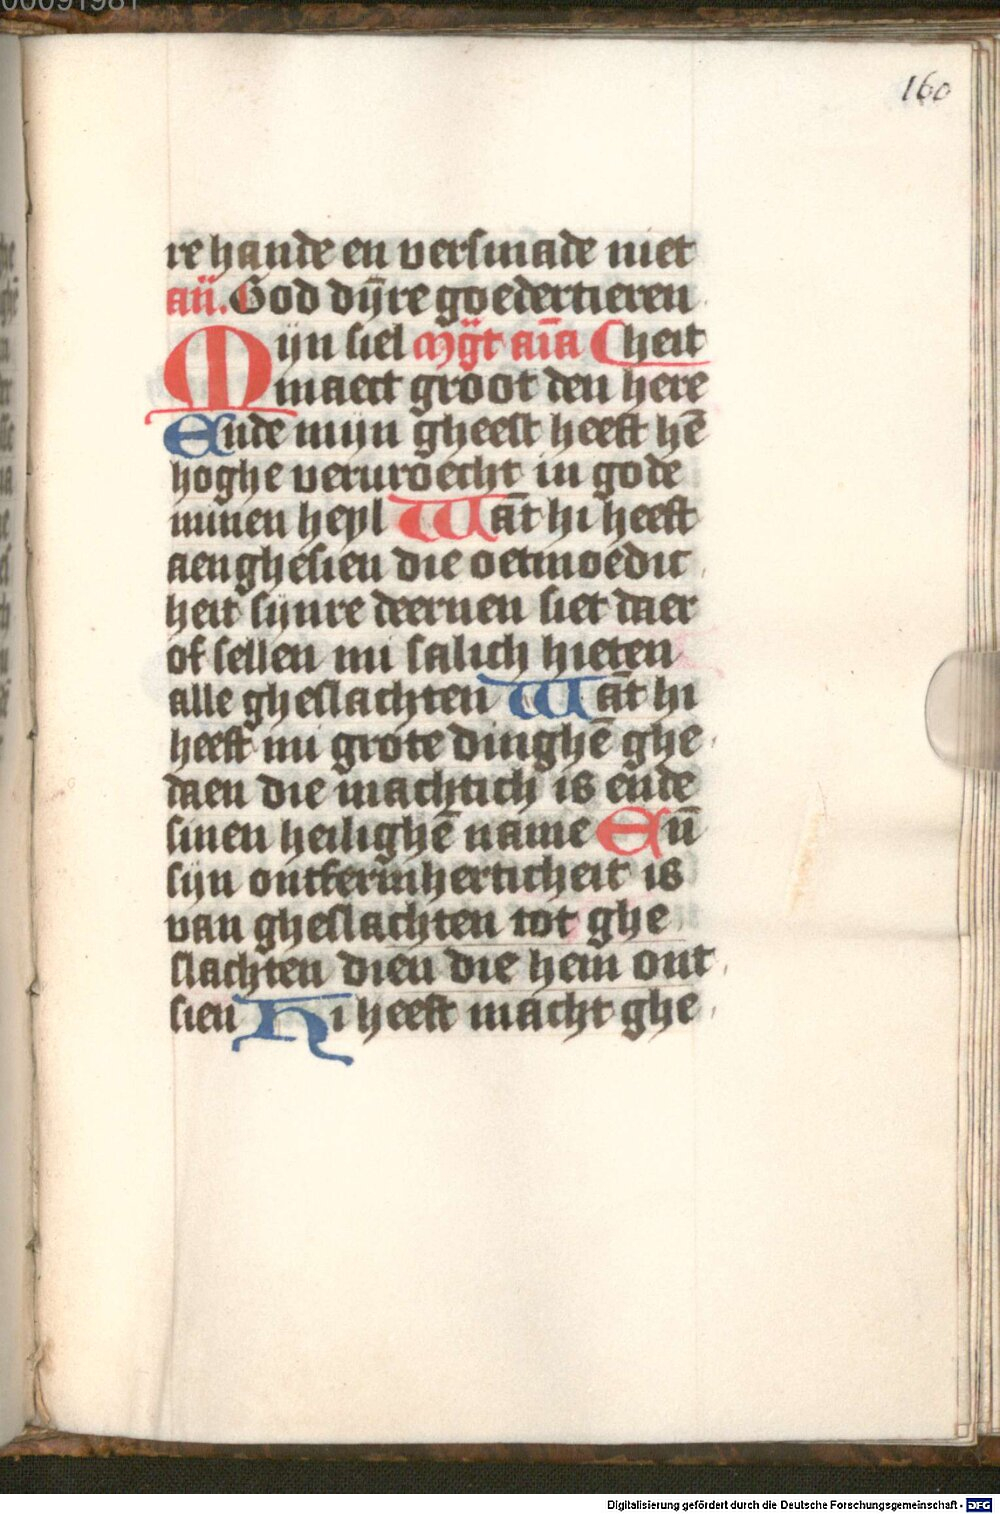 00091981
160
re hande en versmade niet
an̄. God dijnre goedertieren
Mijn siel Mg̃t aīa Cheit
maect groot den here
Ende mijn gheest heeft hē
hoghe veruroecht in gode
minen heyl Wāt hi heeft
aenghesien die oetmoedic
heit sijnre deernen siet daer
of sellen mi salich hieten
alle gheslachten Wāt hi
heeft mi grote dinghē ghe
daen die machtich is ende
sinen heilighē name En̄
sijn ontfermherticheit is
van gheslachten tot ghe
slachten dien die hem ont
sien Hi heeft macht ghe
Digitalisierung gefördert durch die Deutsche Forschungsgemeinschaft - DFG